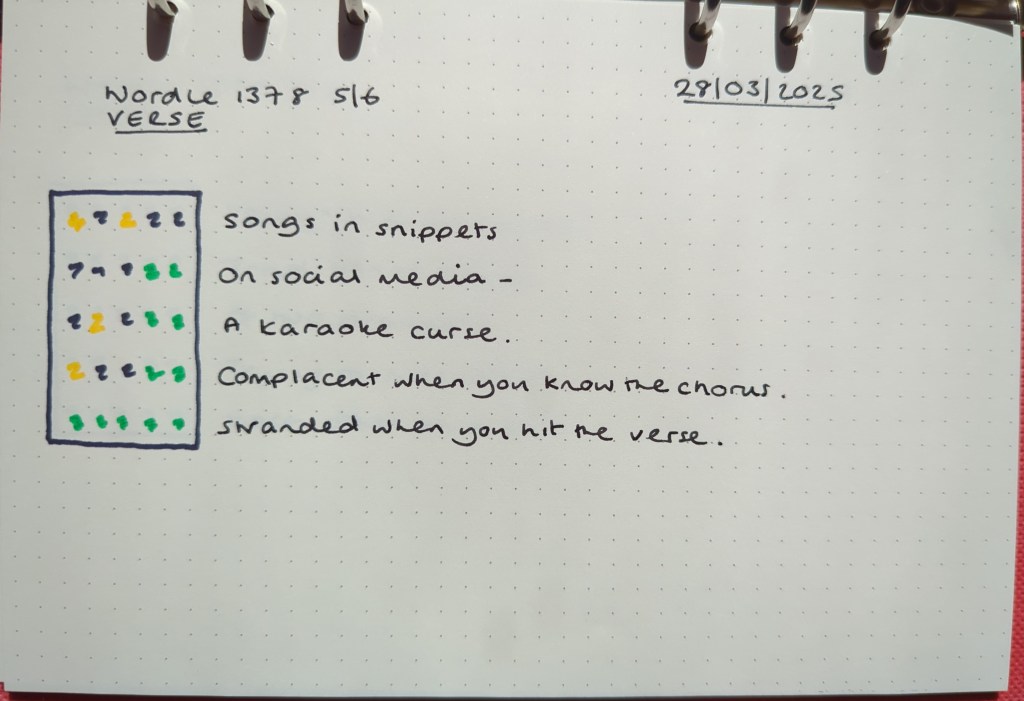 Wordle 1378 5/6
28/03/2025
VERSE
Songs in snippets
On social media -
A karaoke curse.
Complacent when you know the chorus.
Stranded when you hit the verse.